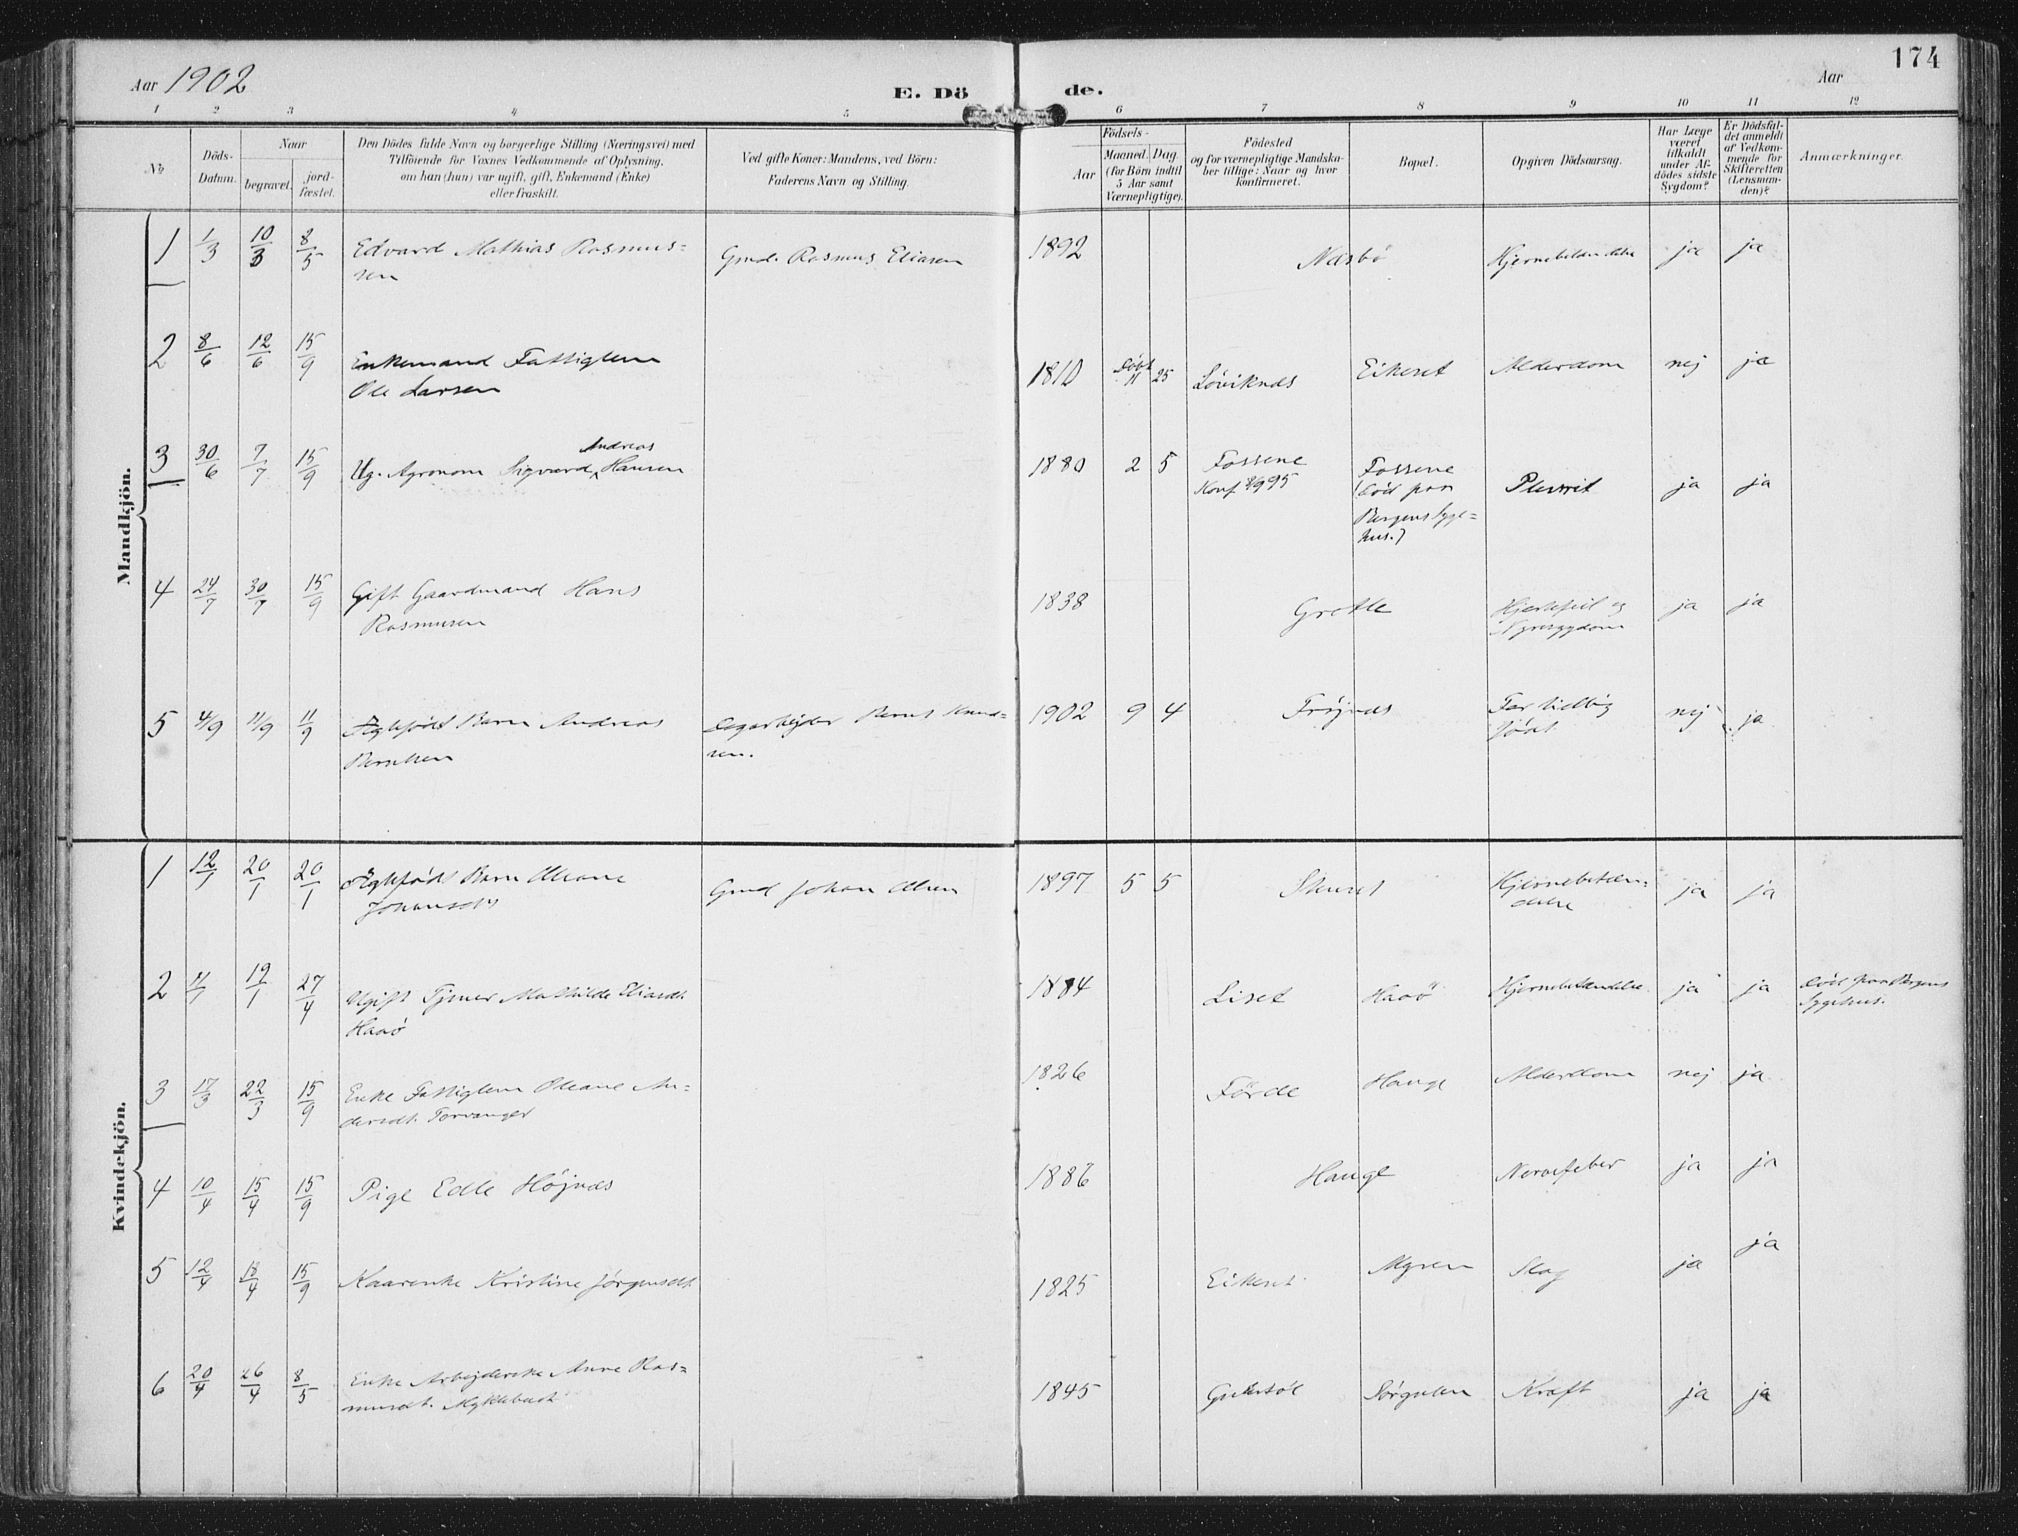 174
Aar 1902
E. Dö de.
Aar
1 2 3 4 5 6 7 8 9 10 11 12
No.
Döds-Datum.
Naar
begravet.
jord-fæstet.
Den Dödes fulde Navn og borgerlige Stilling (Næringsvei) med
Tilföiende for Voxnes Vedkommende af Oplysning,
om han (hun) var ugift, gift, Enkemand (Enke)
eller fraskilt.
Ved gifte Koner: Mandens, ved Börn:
Faderens Navn og Stilling.
Födsels-
Aar
Maaned. Dag.
(for Börn indtil
5 Aar samt
Værnepligtige).
Födested
og for værnepligtige Mandska-
ber tillige: Naar og hvor
konfirmeret.
Bopæl.
Opgiven Dödsaarsag.
Har Læge
været
tilkaldt
under Af-
dödes sidste
Sygdom?
Er Dödsfal-
det anmeldt
af Vedkom-
mende for
Skifteretten
(Lensman-
den)?
Anmærkninger.
Mandkjön.
1 1/3 10/3 8/5 Edvard Mathias Rasmus=
sen
Gmd. Rasmus Eliasen 1892 Næsbö Hjernebetændelse ja ja
2 8/6 12/6 15/9 Enkemand Fattiglem
Ole Larsen
1810 Døbt 11 25 Löviknæs Eikeset Alderdom nej ja
3 30/6 7/7 15/9 Ug. Agronom Sigvard Andreas Hansen
1880 2 5 Fossene
Konf. 95
Fossene
(död paa
Bergens Syge=
hus.)
Plevrit ja ja
4 24/7 30/7 15/9 Gift Gaardmand Hans
Rasmusen
1838 Grotle Hjertefeil og
Nyresygdom ja ja
5 4/9 11/9 11/9 Ægtefødt Barn Andreas
Berntsen
Dagarbejder Bernt Knud=
sen.
1902 9 4 Frøjnæs For tidlig
født nej ja
Kvindekjön.
1 12/1 20/1 20/1 Ægtefødt Barn Oleane
Johansdtr
Gmd Johan Olsen 1897 5 5 Hjernebetæn=
delse ja ja
2 11/1 19/1 27/4 Ugift Tjener Mathilde Eliasdt.
Haaö
1884 Liset Haaö Hjernebetændelse ja ja Död paa Bergens
Sygehus.
3 17/3 22/3 15/9 Enke Fattiglem Oleane An=
dersdt. Torvanger
1826 Förde Hauge Alderdom nej ja
4 10/4 15/4 15/9 Pige Edle Højnæs
1886 Hauge Nervefeber ja ja
5 12/4 18/4 15/9 Kaarenke Kristine Jørgensdt.
1825 Eikeset Myren Slag ja ja
6 20/4 26/4 8/5 Enke Arbejderske Anne Ras=
musdt. Myklebust
1845 Sörgulen Kræft ja ja